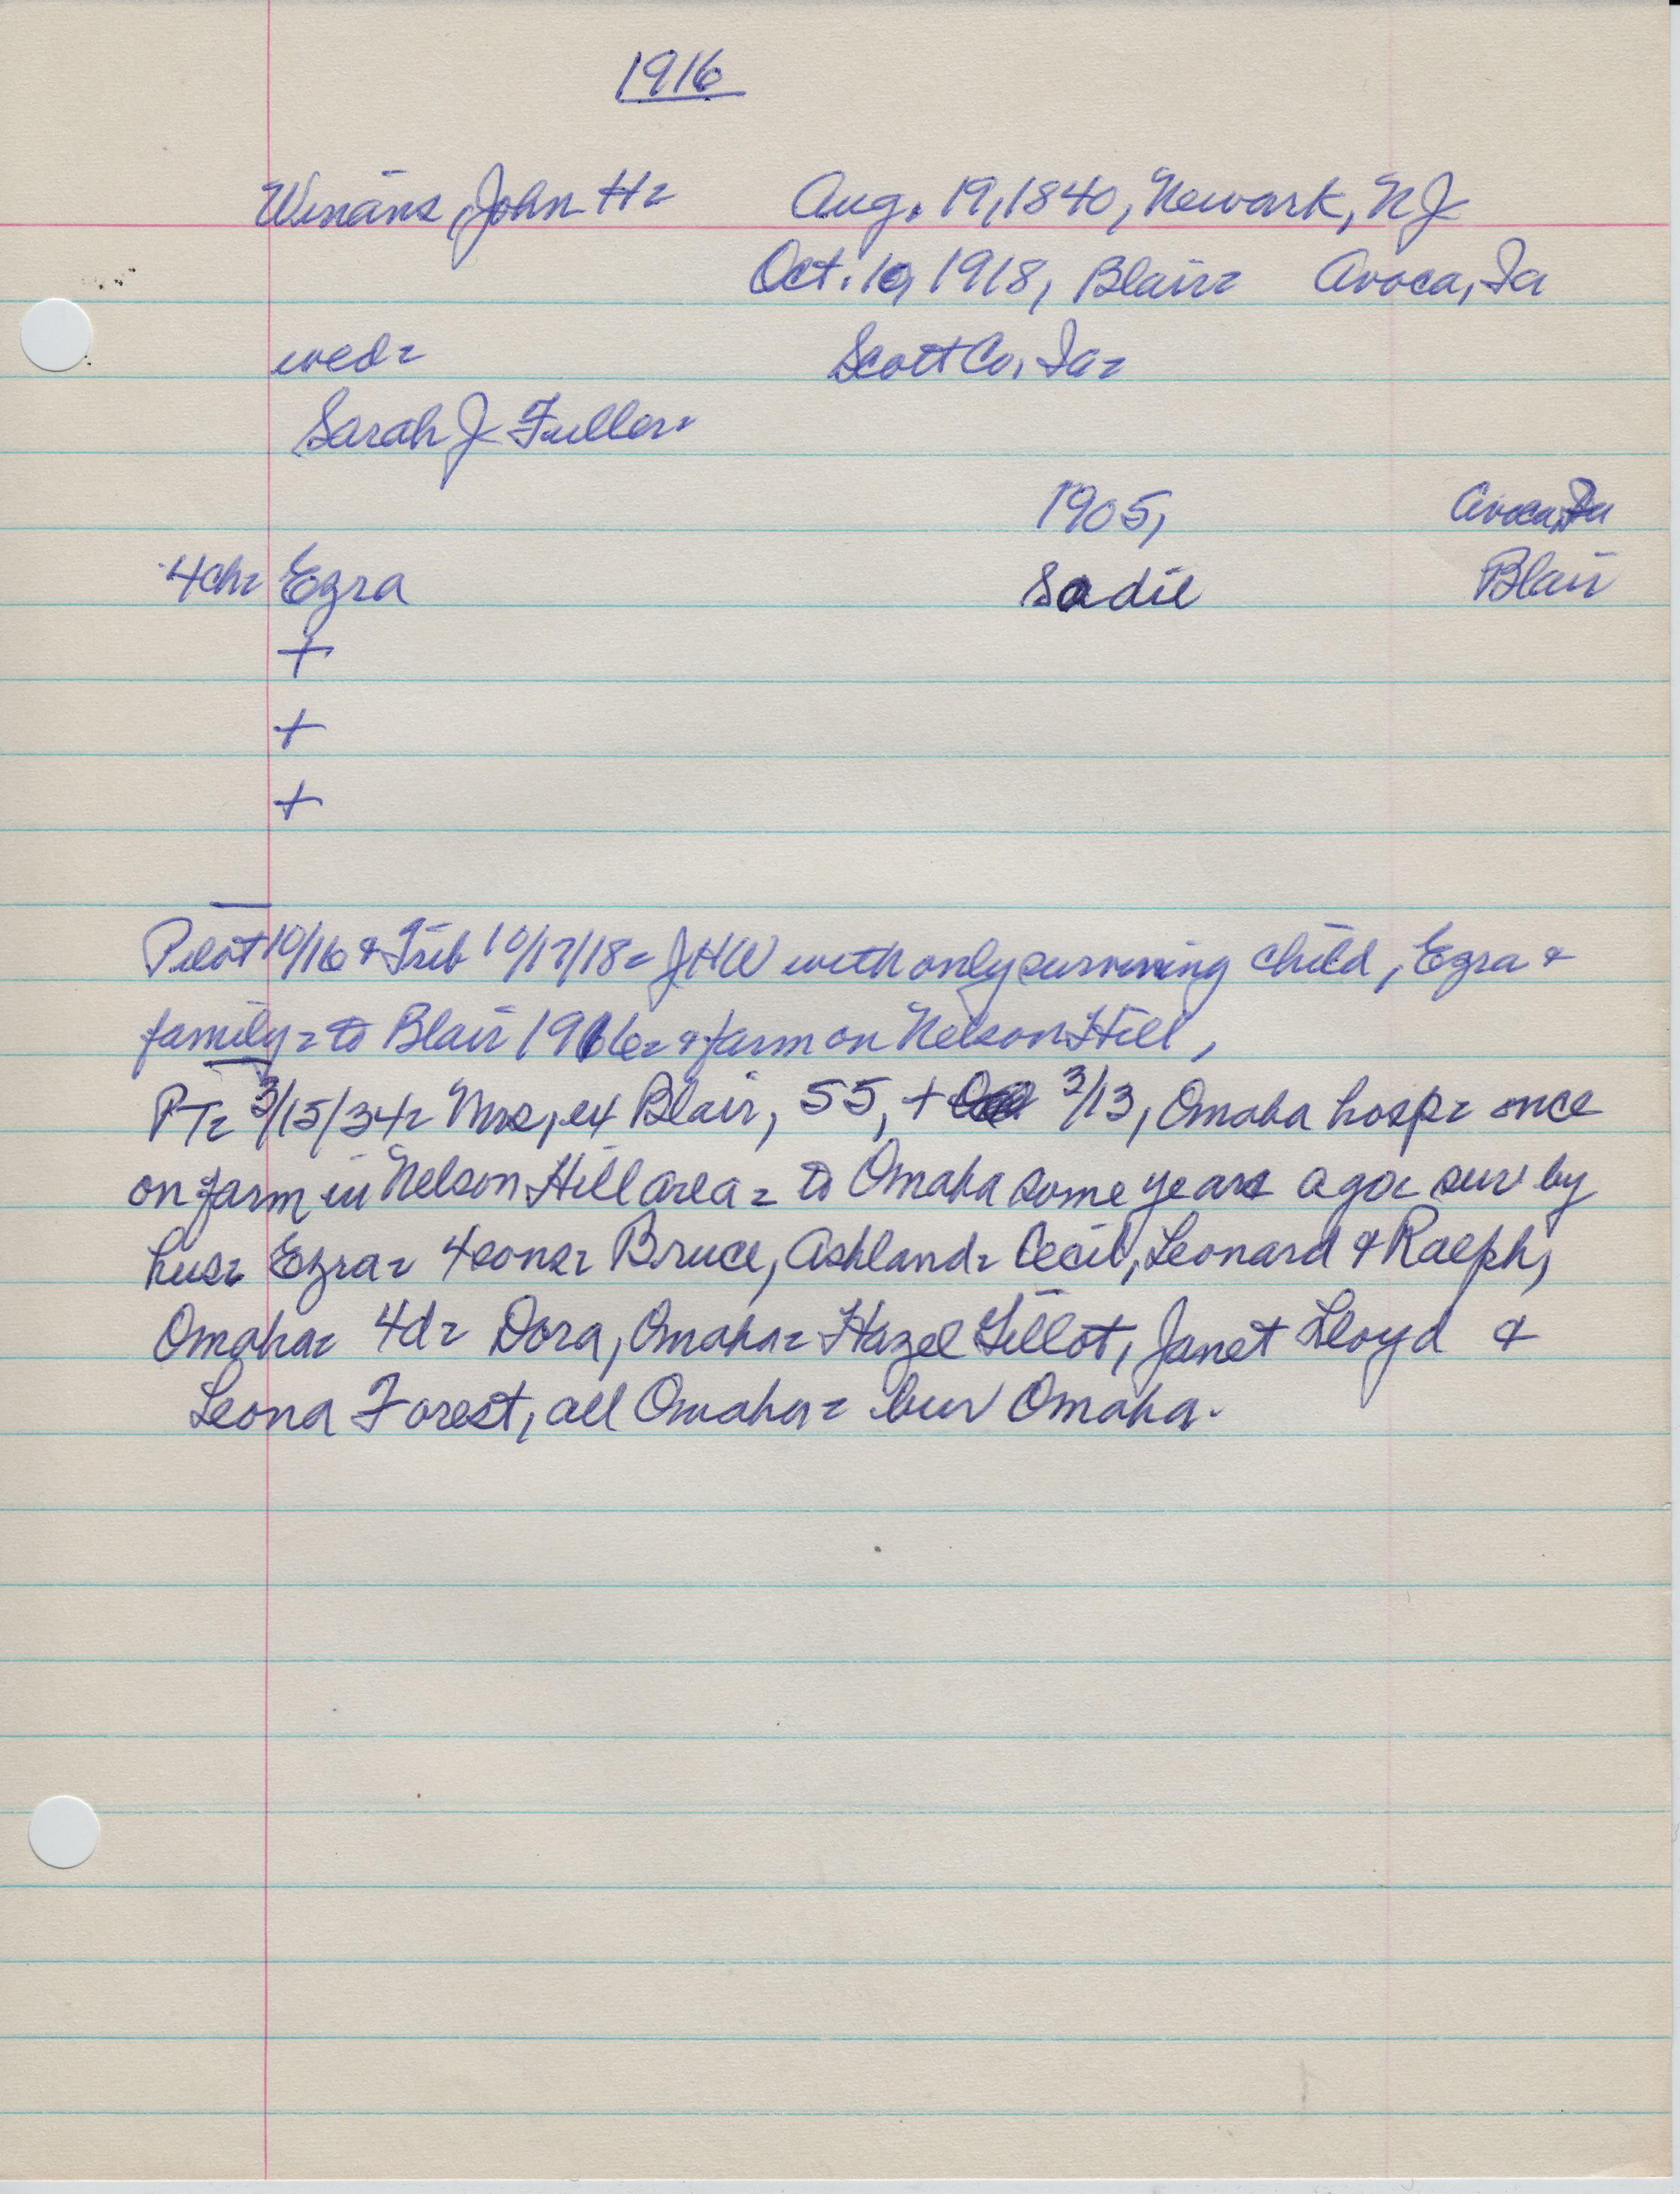 1916
Winans, John H= Aug. 19, 1840, Newark, NJ
Oct. 10, 1918, Blair= Avoca, Ia
wed= Scott Co, Ia=
Sarah J Fuller=
1905, Avoca, Ia
4ch= Ezra Sadie Blair
+
+
+
Pilot 10/16 & Trib 10/17/18= JHW with only surviving child, Ezra &
family= to Blair 1916= & farm on Nelson Hill,
PT= 3/15/34= Mrs, ex Blair, 55, + 3/13, Omaha hosp= once
on farm in Nelson Hill area= to Omaha some years ago= surv by
hus= Ezra= 4 sons= Bruce, Ashland= Cecil, Leonard & Ralph,
Omaha= 4d= Dora, Omaha= Hazel Gillot, Janet Lloyd &
Leona Forest, all Omaha= bur Omaha.